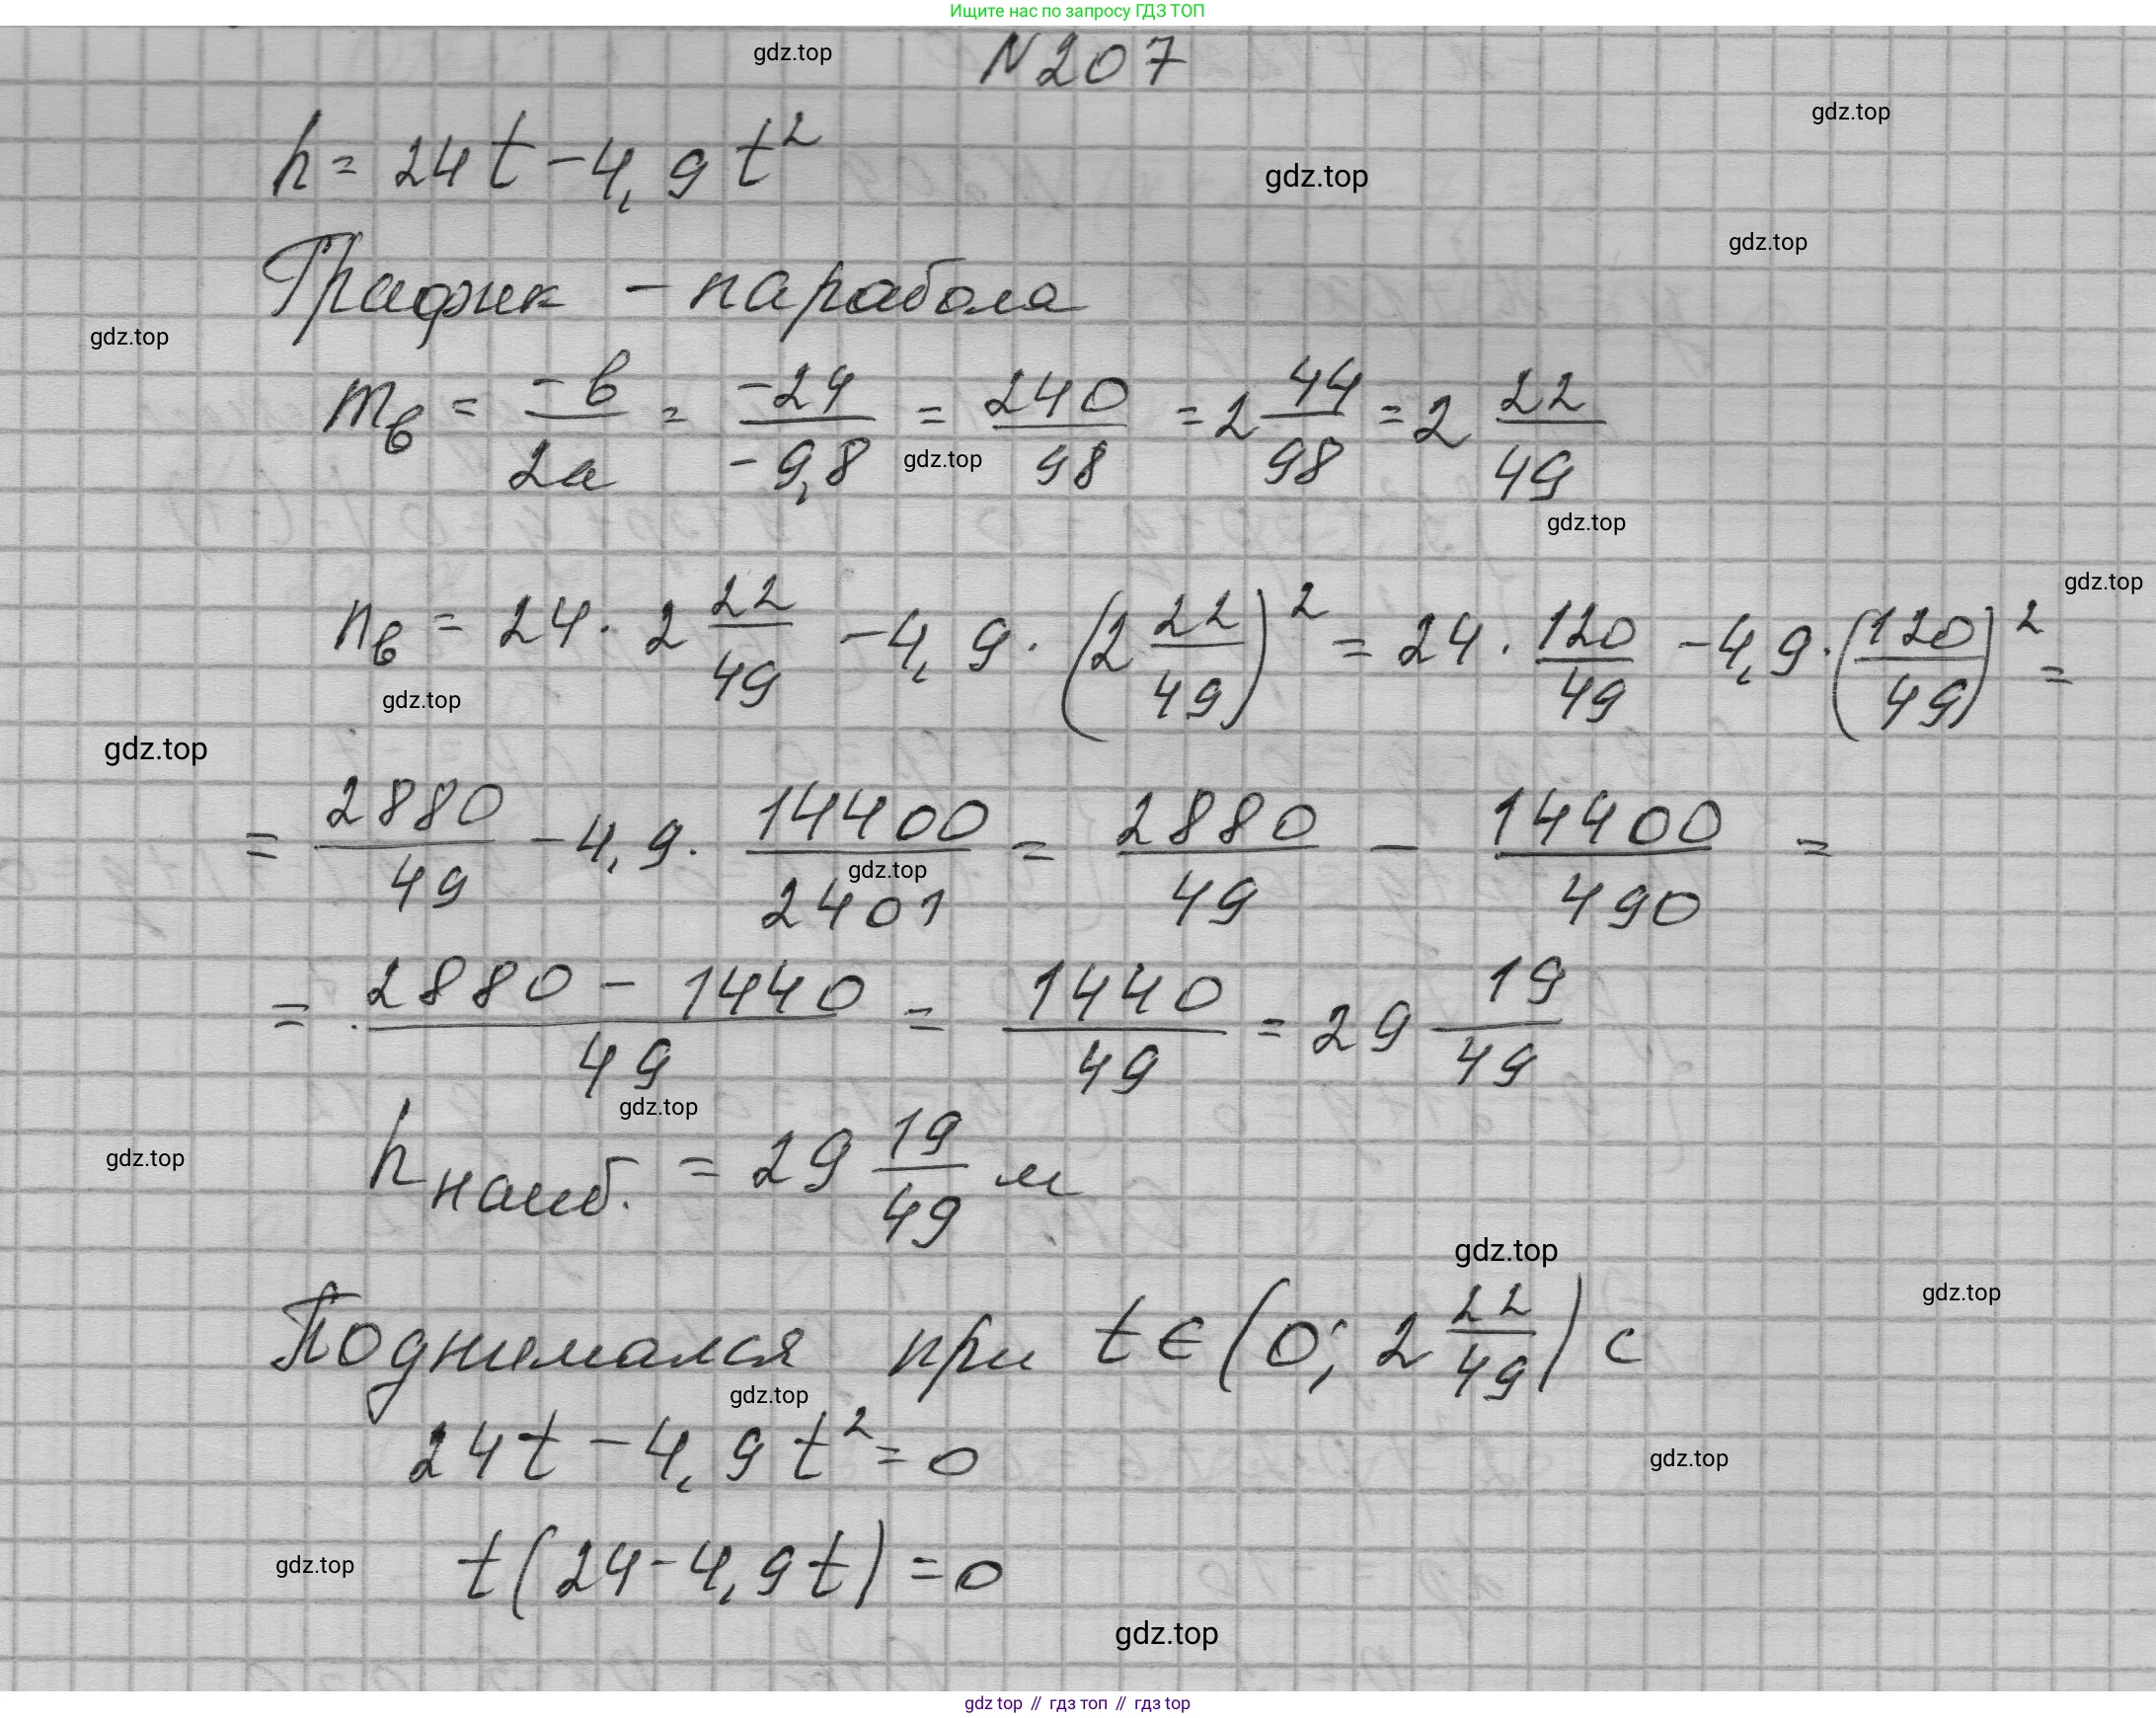 Ищите нас по запросу ГДЗ ТОП
gdz.top
N 207
gdz.top
h = 24t - 4,9t²
gdz.top
gdz.top
График - парабола
gdz.top
m_в = -b/2a = -24/-9,8 = 240/98 = 2 44/98 = 2 22/49
gdz.top
gdz.top
gdz.top
n_в = 24 · 2 22/49 - 4,9 · (2 22/49)² = 24 · 120/49 - 4,9 · (120/49)² =
gdz.top
gdz.top
= 2880/49 - 4,9 · 14400/2401 = 2880/49 - 14400/490 =
gdz.top
= 2880 - 1440/49 = 1440/49 = 29 19/49
gdz.top
h наиб. = 29 19/49 м
gdz.top
gdz.top
gdz.top
Поднимался при t ∈ (0; 2 22/49) с
gdz.top
24t - 4,9t² = 0
gdz.top
t(24 - 4,9t) = 0
gdz.top
gdz.top
gdz top // гдз топ // гдз top